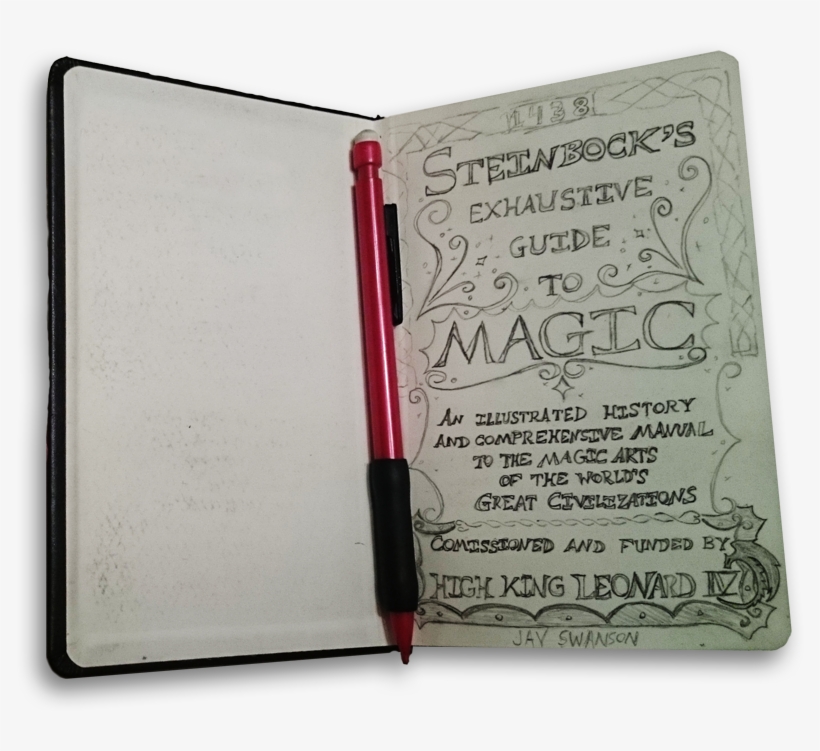 1438
STEINBOCK'S
EXHAUSTIVE
GUIDE
TO
MAGIC
AN ILLUSTRATED HISTORY
AND COMPREHENSIVE MANUAL
TO THE MAGIC ARTS
OF THE WORLD'S
GREAT CIVILIZATIONS
COMISSIONED AND FUNDED BY
HIGH KING LEONARD IV
JAY SWANSON